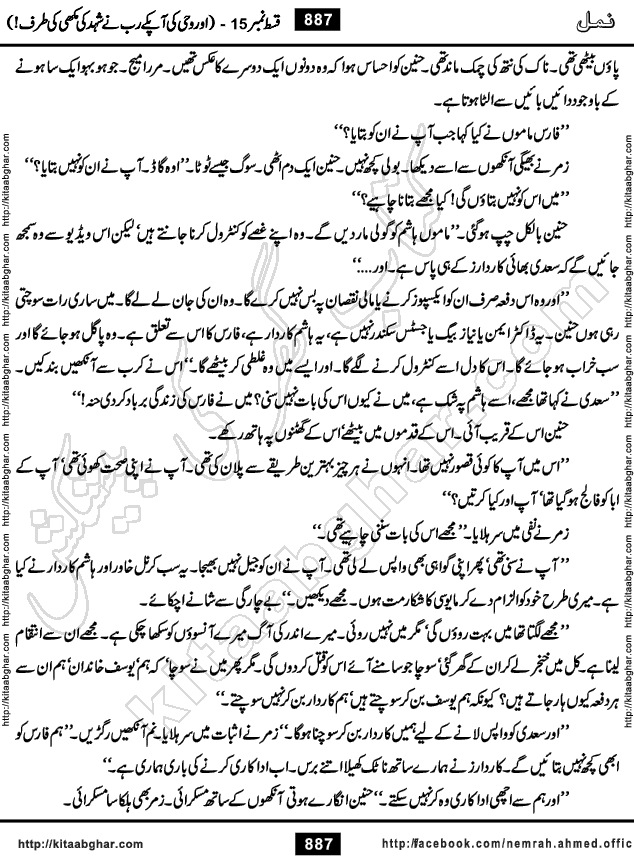 نمل 887 قسط نمبر 15 - (اور وحی کی آپکے رب نے شہد کی مکھی کی طرف!)
پاؤں بیٹھی تھی۔ ناک کی نتھ کی چمک ماند تھی۔ حنین کو احساس ہوا کہ وہ دونوں ایک دوسرے کا عکس تھیں۔ مرر امیج۔ جو ہو بہو ایک سا ہونے
کے باوجود دائیں بائیں سے الٹا ہوتا ہے۔
’’فارس ماموں نے کیا کہا جب آپ نے ان کو بتایا؟‘‘
زمر نے بھیگی آنکھوں سے اسے دیکھا۔ بولی کچھ نہیں۔ حنین ایک دم اٹھی۔ سوگ جیسے ٹوٹا۔ ’’اوہ گاڈ۔ آپ نے ان کو نہیں بتایا؟‘‘
’’میں اس کو نہیں بتاؤں گی! کیا مجھے بتانا چاہیے؟‘‘
حنین بالکل چپ ہوگئی۔ ’’ماموں ہاشم کو گولی مار دیں گے۔ وہ اپنے غصے کو کنٹرول کرنا جانتے ہیں‘ لیکن اس ویڈیو سے وہ سمجھ
جائیں گے کہ سعدی بھائی کاردارز کے ہی پاس ہے۔ اور....‘‘
’’اور وہ اس دفعہ صرف ان کو ایکسپوز کرنے یا مالی نقصان پہ بس نہیں کرے گا۔ وہ ان کی جان لے لے گا۔ میں ساری رات سوچتی
رہی ہوں حنین۔ یہ ڈاکٹر ایمن یا نیاز بیگ یا جسٹس سکندر نہیں ہے، یہ ہاشم کاردار ہے، فارس کا اس سے تعلق ہے۔ وہ پاگل ہو جائے گا اور
سب خراب ہو جائے گا۔ اس کا دل اسے کنٹرول کرنے لگے گا۔ اور ایسے میں وہ غلطی کر بیٹھے گا۔‘‘ اس نے کرب سے آنکھیں بند کیں۔
’’سعدی نے کہا تھا مجھے، اسے ہاشم پہ شک ہے، میں نے کیوں اس کی بات نہیں سنی؟ میں نے فارس کی زندگی برباد کر دی حنہ!‘‘
حنین اس کے قریب آئی۔ اس کے قدموں میں بیٹھے‘ اس کے گھٹنوں پہ ہاتھ رکھے۔
’’اس میں آپ کا کوئی قصور نہیں تھا۔ انہوں نے ہر چیز بہترین طریقے سے پلان کی تھی۔ آپ نے اپنی صحت کھوئی تھی‘ آپ کے
ابا کو فالج ہو گیا تھا‘ آپ اور کیا کرتیں؟‘‘
زمر نے نفی میں سر ہلایا۔ ’’مجھے اس کی بات سننی چاہیے تھی۔‘‘
’’آپ نے سنی تھی‘ پھر اپنی گواہی بھی واپس لے لی تھی۔ آپ نے ان کو جیل نہیں بھیجا۔ یہ سب کرنل خاور اور ہاشم کاردار نے کیا
ہے۔ میری طرح خود کو الزام دے کر مایوسی کا شکار مت ہوں۔ مجھے دیکھیں۔‘‘ بے چارگی سے شانے اچکائے۔
’’مجھے لگتا تھا میں بہت روؤں گی‘ مگر میں نہیں روئی۔ میرے اندر کی آگ میرے آنسوؤں کو سکھا چکی ہے۔ مجھے ان سے انتقام
لینا ہے۔ کل میں خنجر لے کر ان کے گھر گئی‘ سوچا جو سامنے آئے اس کو قتل کر دوں گی۔ مگر پھر میں نے سوچا‘ کہ ہم یوسف خاندان‘ ہم ان سے
ہر دفعہ کیوں ہار جاتے ہیں؟ کیونکہ ہم یوسف بن کر سوچتے ہیں‘ ہم کاردار بن کر نہیں سوچتے۔‘‘
’’اور سعدی کو واپس لانے کے لیے ہمیں کاردار بن کر سوچنا ہوگا۔‘‘ زمر نے اثبات میں سر ہلایا۔ نم آنکھیں رگڑیں۔ ’’ہم فارس کو
ابھی کچھ نہیں بتائیں گے۔ کاردارز نے ہمارے ساتھ ناٹک کھیلا اتنے برس۔ اب اداکاری کرنے کی باری ہماری ہے۔‘‘
’’اور ہم سے اچھی اداکاری وہ کر نہیں سکتے۔‘‘ حنین انگارے ہوتی آنکھوں کے ساتھ مسکرائی۔ زمر بھی ہلکا سا مسکرائی۔
http://kitaabghar.com 887 http://facebook.com/nemrah.ahmed.offic
http://kitaabghar.com http://kitaabghar.com http://kitaabghar.com http://kitaabghar.com http://kitaabghar.com
http://kitaabghar.com http://kitaabghar.com http://kitaabghar.com http://kitaabghar.com http://kitaabghar.com
کتاب گھر کی پیشکش
kitaabghar.com